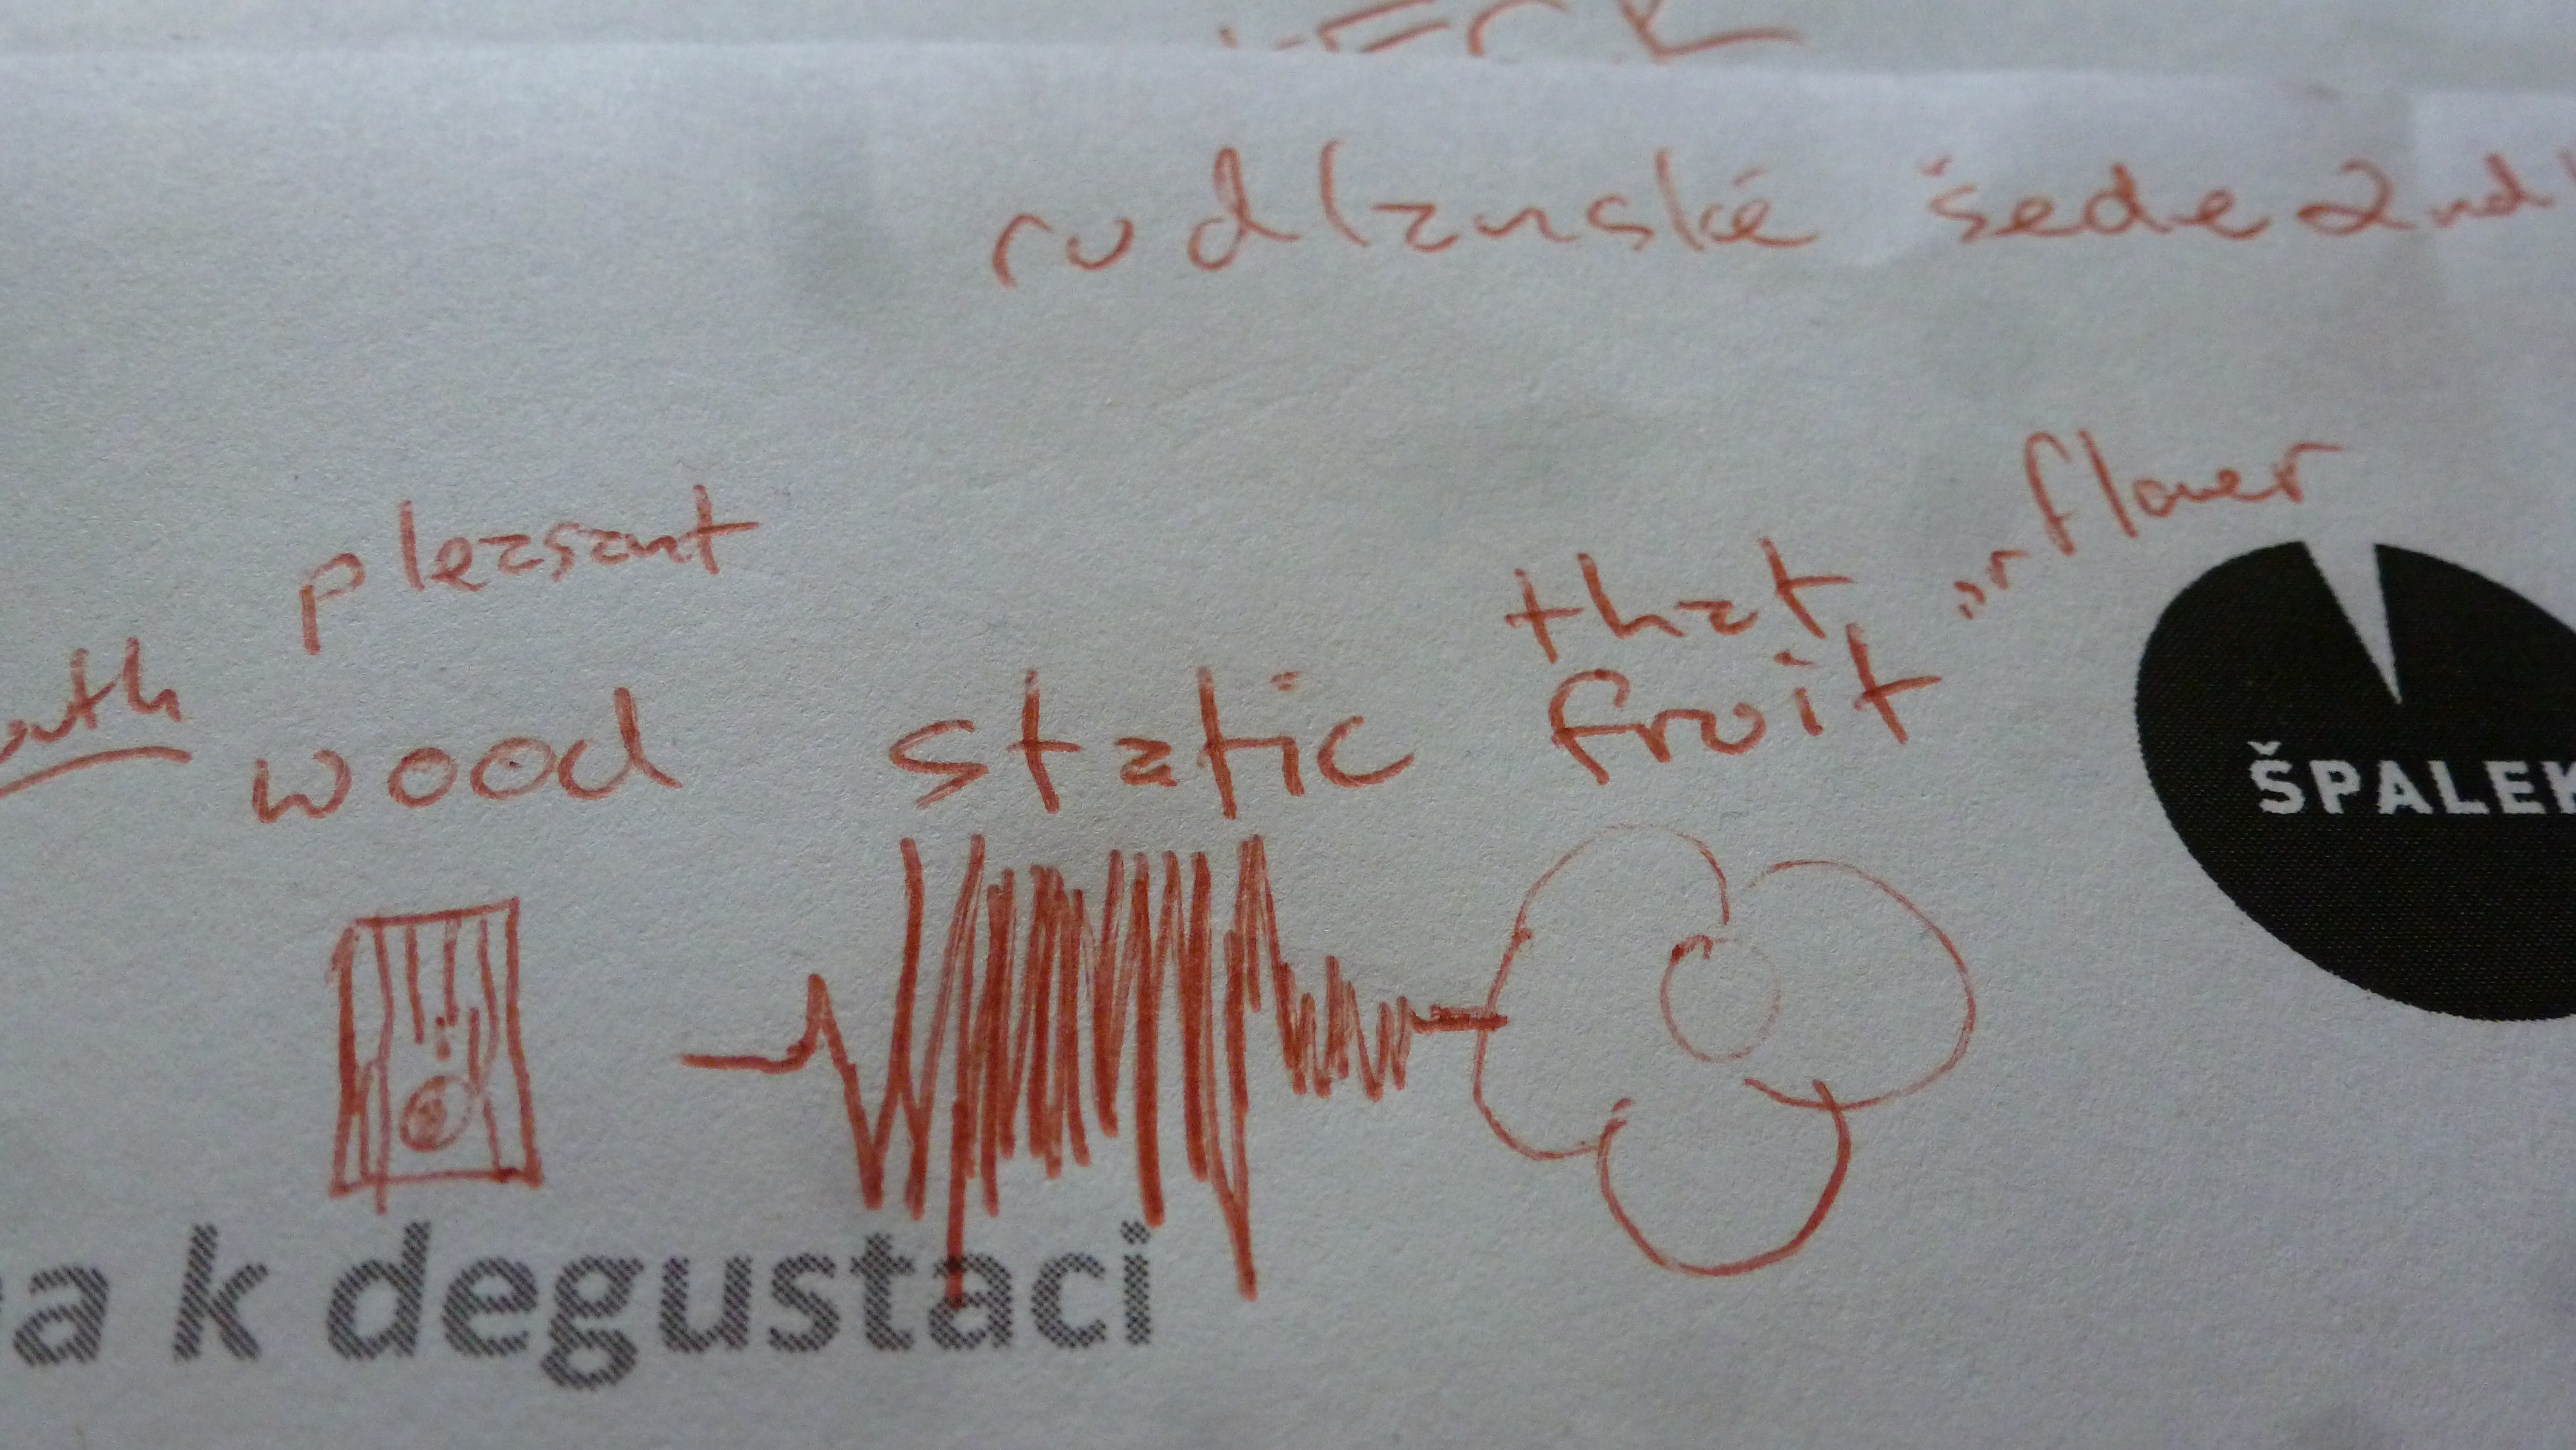 rudlanské šede 2nd
pleasant
wood
static
that
fruit
or flower
ŠPALEK
a k degustaci